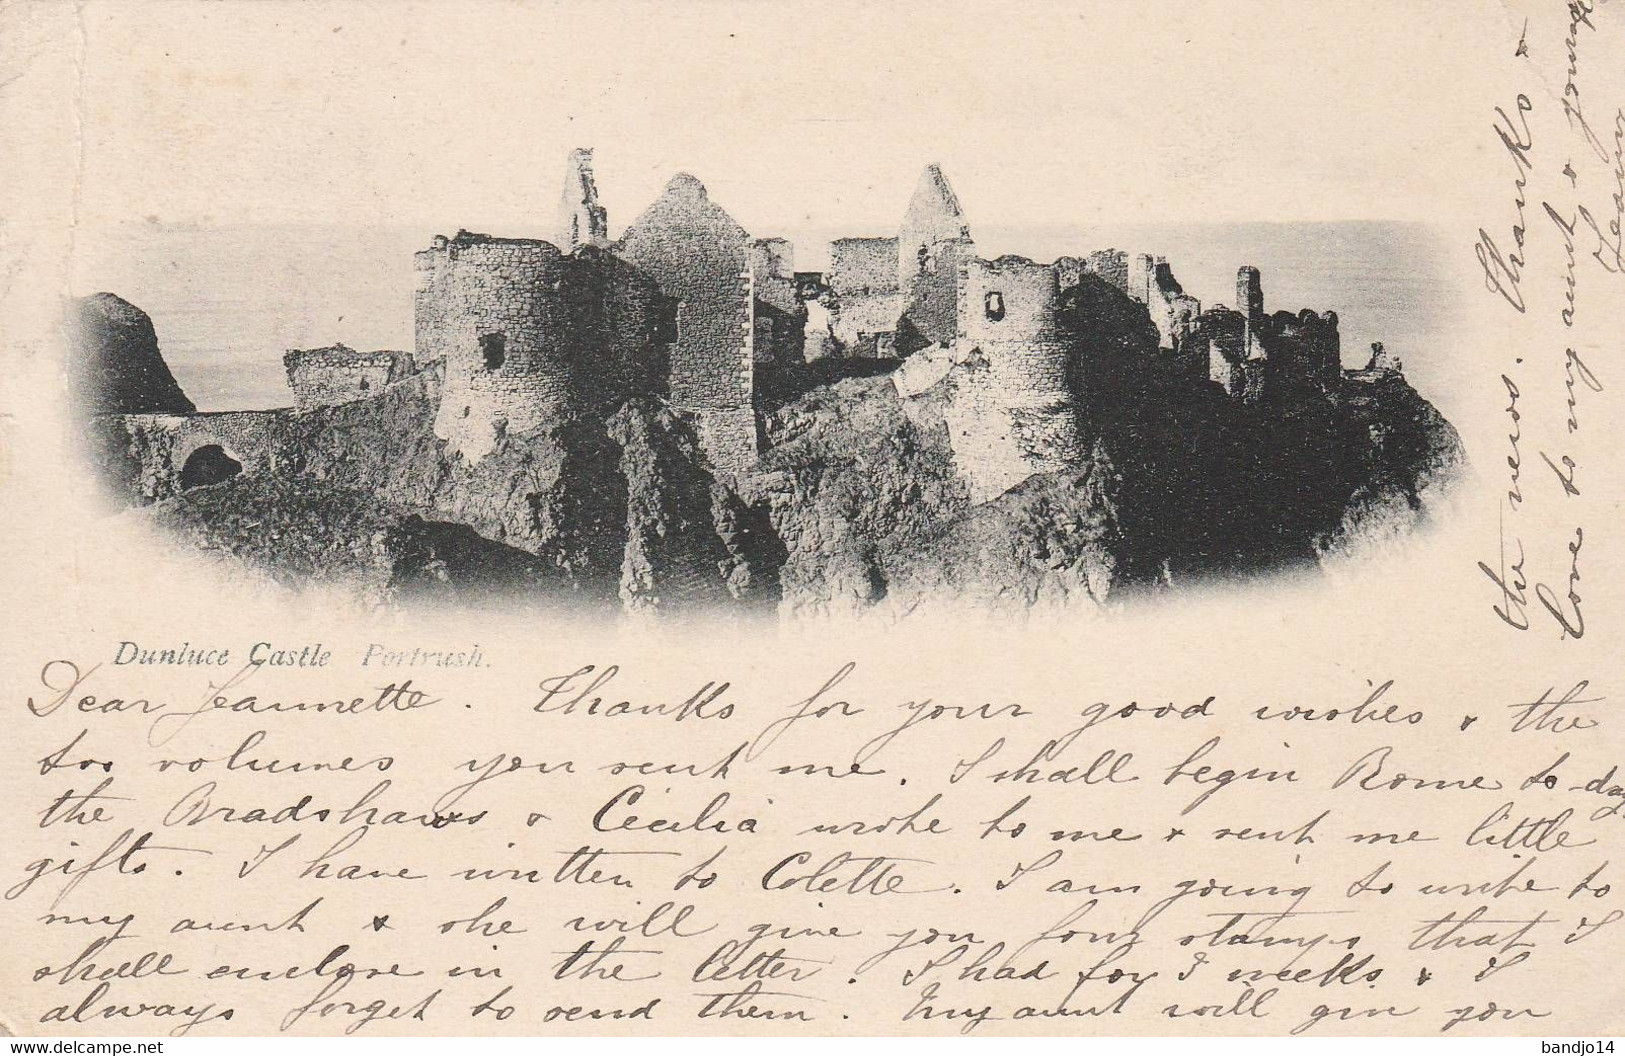 Dunluce Castle Portrush.
Dear Jeannette. Thanks for your good wishes & the
two volumes you sent me. I shall begin Rome to-day
the Bradshaws & Cécilia wrote to me & sent me little
gifts. I have written to Colette. I am going to write to
my aunt & she will give you four stamps that I
shall enclose in the letter. I had for 3 weeks & I
always forget to send them. My aunt will give you
the news. Thanks &
love to my aunt &
bandjo14